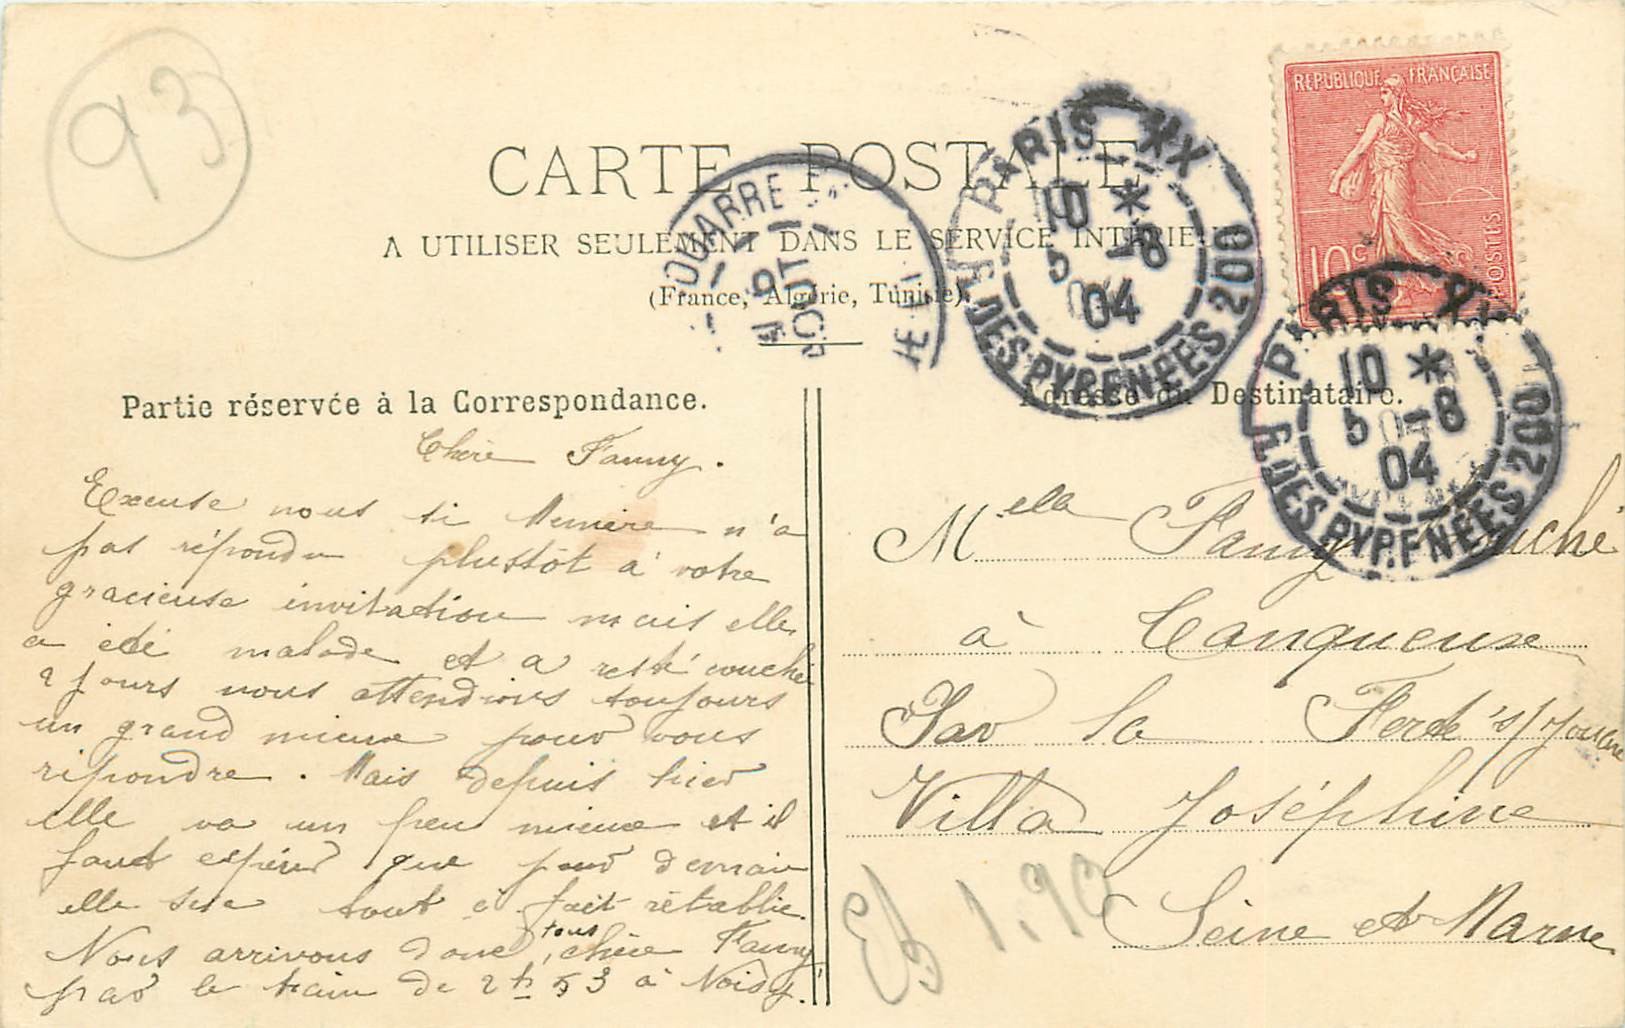 93
CARTE POSTALE
A UTILISER SEULEMENT DANS LE SERVICE INTÉRIEUR
(France, Algérie, Tunisie)
REPUBLIQUE FRANÇAISE
10c
POSTES
PARIS XX
10 *
5 -8
04
R. DES PYRENEES 200
PARIS XX
10 *
5 -8
04
R. DES PYRENEES 200
OUARRE
AOUT
Partie réservée à la Correspondance.
Chère Fanny.
Excuse nous si Mémère n'a
pas répondu plustôt à votre
gracieuse invitation mais elle
a été malade et a resté couché
2 jours nous attendions toujours
un grand mieux pour vous
répondre. Mais depuis hier
elle va un peu mieux et il
faut espérer que pour demain
elle sera tout à fait rétablie.
Nous arrivons donc, tous chère Fanny,
par le train de 2h 53 à Noidy.
Adresse du Destinataire.
Melle Fanny
à Tanqueuse
Par la Ferté s/ Jouarre
Villa Joséphine
Seine et Marne
1.90